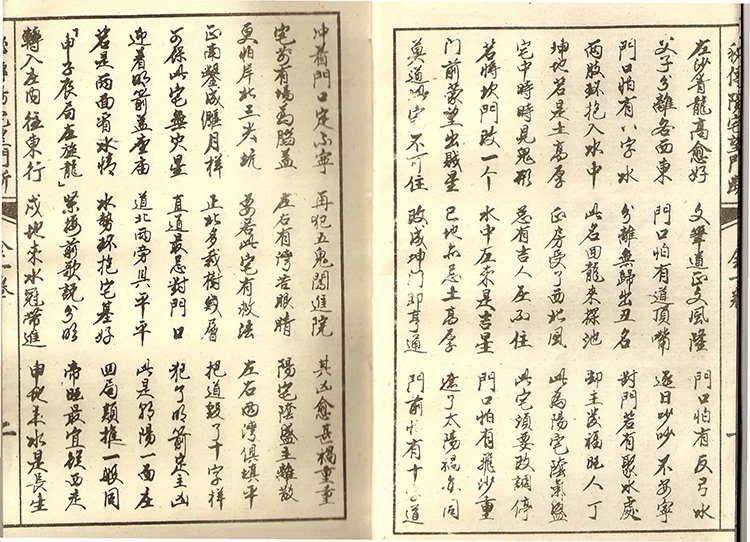 秘傳陽宅望門斷 全一卷 一
左沙青龍高愈好 文筆道正文風隆 門口怕有反弓水
父子分離各西東 門口怕有道頂帶 逐日吵吵不安寧
門口怕有八字水 分離異歸出丑名 對門若有聚水處
兩股環抱入水中 此名回龍來探池 卻主發福旺人丁
坤地若是土高厚 正房受了西北風 此為陽宅陰氣盛
宅中時時見鬼形 總有吉人在不住 此宅須要改調停
若將坎門改一个 水中在來是吉星 門口怕有飛沙重
門前蒙望出賊星 巳地亦忌土高厚 遮了太陽禍亦同
莫道此宅不可住 改成坤門即亨通 門前怕有十字道
冲着門口定不寧 再犯五鬼閙進院 其凶愈甚禍重重
宅前有塲為腦蓋 左右有灣苦眼睛 陽宅陰盛主離散
更怕岸北三尖坑 要若此宅有救法 左右兩灣俱填平
正南鑿成腰月樣 正北多栽樹幾層 把道毀了十字樣
可保此宅無火星 直道最忌對門口 犯了明箭是主凶
迎着明箭蓋座廟 道北兩旁具平平 此是朝陽一面座
若是兩面省水情 水勢環抱宅基好 四局類推一般同
「申子辰局左旋龍」 緊接前歌說分明 帝旺最宜從西走
轉入左南往東行 戌地來水冠帶進 申地來水是長生
全一卷 二